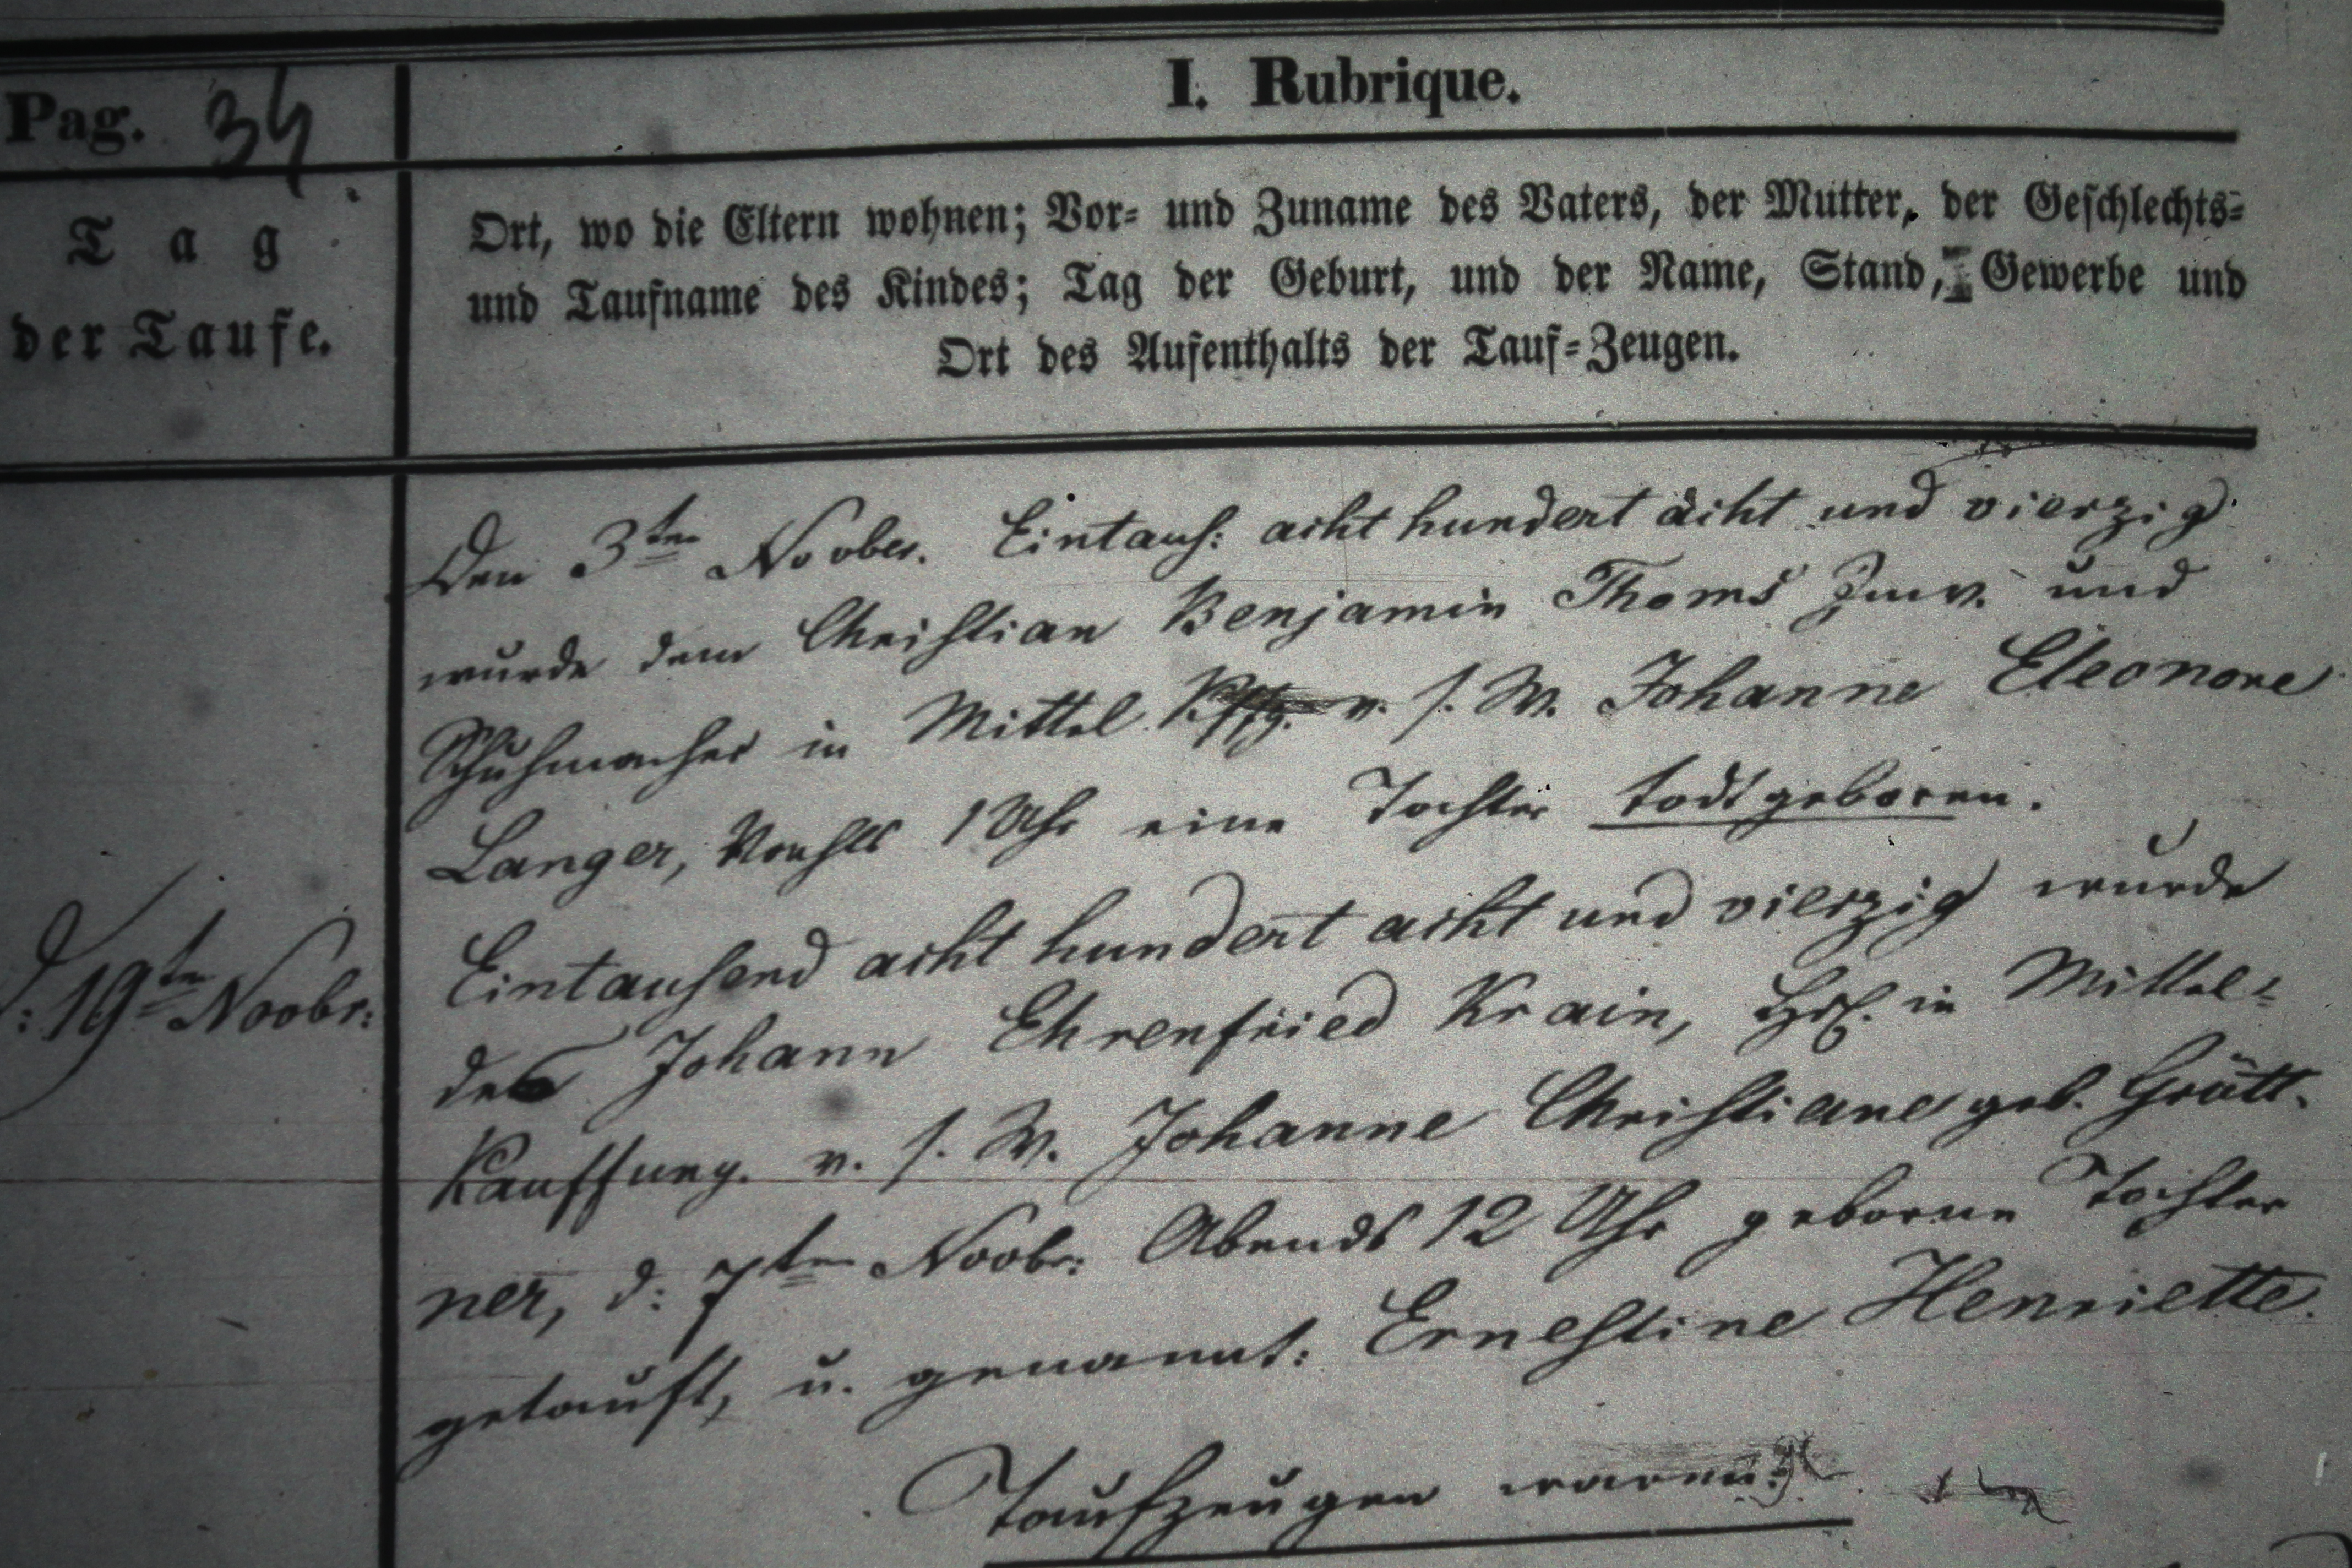 I. Rubrique.
Pag. 34
Tag
der Taufe.
Ort, wo die Eltern wohnen; Vor- und Zuname des Vaters, der Mutter, der Geschlechts-
und Taufname des Kindes; Tag der Geburt, und der Name, Stand, Gewerbe und
Ort des Aufenthalts der Tauf-Zeugen.
Den 3ten Novber. Eintaus: acht hundert acht und vierzig
wurde dem Christian Benjamin Thoms und
Schuhmacher in Mittel Kffg. u. s. W. Johanne Eleonore
Langer, 1 Uhr eine Tochter todtgeboren.
d: 19ten Novbr:
Eintausend acht hundert acht und vierzig wurde
des Johann Ehrenfried Krain, in Mittel-
Kauffung. u. s. W. Johanne Christiane geb. Grütt-
ner, d: 7ten Novbr: Abends 12 Uhr geborne Tochter
getauft, u. genannt: Ernestine Henriette.
Taufzeugen waren: